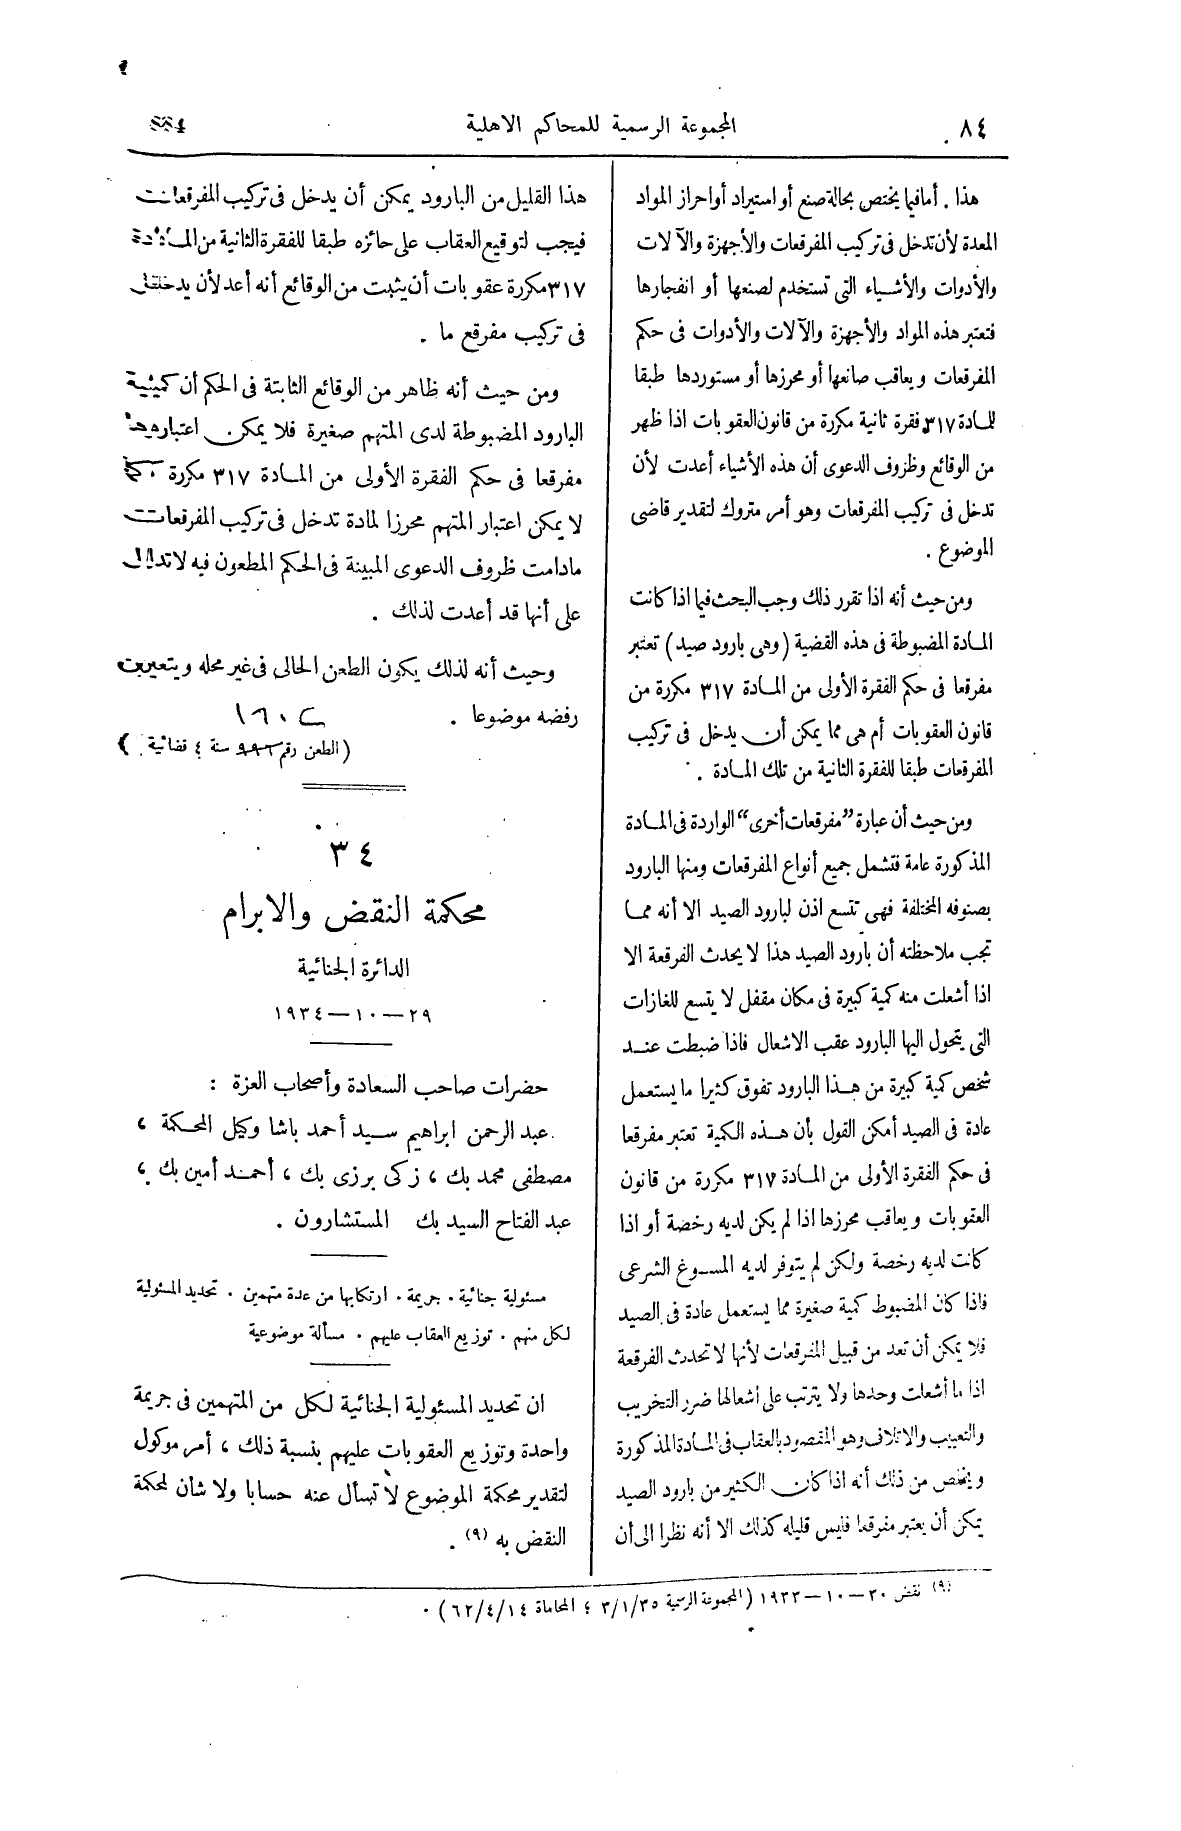 ٨٤
المجموعة الرسمية للمحاكم الاهلية
هذا . أما فيما يختص بحالة صنع أو استيراد أو احراز المواد
المعدة لأن تدخل فى تركيب المفرقعات والأجهزة والآلات
والأدوات والأشياء التى تستخدم لصنعها أو انفجارها
فتعتبر هذه المواد والأجهزة والآلات والأدوات فى حكم
المفرقعات ويعاقب صانعها أو محرزها أو مستوردها طبقا
للمادة ٣١٧ فقرة ثانية مكررة من قانون العقوبات اذا ظهر
من الوقائع وظروف الدعوى أن هذه الأشياء أعدت لأن
تدخل فى تركيب المفرقعات وهو أمر متروك لتقدير قاضى
الموضوع .
ومن حيث أنه اذا تقرر ذلك وجب البحث فيما اذا كانت
المادة المضبوطة فى هذه القضية (وهى بارود صيد) تعتبر
مفرقعا فى حكم الفقرة الأولى من المادة ٣١٧ مكررة من
قانون العقوبات أم هى مما يمكن أن يدخل فى تركيب
المفرقعات طبقا للفقرة الثانية من تلك المادة .
ومن حيث أن عبارة ”مفرقعات أخرى“ الواردة فى المادة
المذكورة عامة فتشمل جميع أنواع المفرقعات ومنها البارود
بصنوفه المختلفة فهى تتسع اذن لبارود الصيد الا أنه مما
تجب ملاحظته أن بارود الصيد هذا لا يحدث الفرقعة الا
اذا أشعلت منه كمية كبيرة فى مكان مقفل لا يتسع للغازات
التى يتحول اليها البارود عقب الاشعال فاذا ضبطت عند
شخص كمية كبيرة من هذا البارود تفوق كثيرا ما يستعمل
عادة فى الصيد أمكن القول بأن هذه الكمية تعتبر مفرقعا
فى حكم الفقرة الأولى من المادة ٣١٧ مكررة من قانون
العقوبات ويعاقب محرزها اذا لم يكن لديه رخصة أو اذا
كانت لديه رخصة ولكن لم يتوفر لديه المسوغ الشرعى
فاذا كان المضبوط كمية صغيرة مما يستعمل عادة فى الصيد
فلا يمكن أن تعد من قبيل المفرقعات لأنها لا تحدث الفرقعة
اذا ما أشعلت وحدها ولا يترتب على اشعالها ضرر التخريب
والتعييب والاتلاف وهو المقصود بالعقاب فى المادة المذكورة
ويخلص من ذلك أنه اذا كان الكثير من بارود الصيد
يمكن أن يعتبر مفرقعا فليس قليله كذلك الا أنه نظرا الى أن
هذا القليل من البارود يمكن أن يدخل فى تركيب المفرقعات
فيجب لتوقيع العقاب على حائزه طبقا للفقرة الثانية من المادة
٣١٧ مكررة عقوبات أن يثبت من الوقائع أنه أعد لأن يدخل
فى تركيب مفرقع ما .
ومن حيث أنه ظاهر من الوقائع الثابتة فى الحكم أن كمية
البارود المضبوطة لدى المتهم صغيرة فلا يمكن اعتبارها
مفرقعا فى حكم الفقرة الأولى من المادة ٣١٧ مكررة كما
لا يمكن اعتبار المتهم محرزا لمادة تدخل فى تركيب المفرقعات
مادامت ظروف الدعوى المبينة فى الحكم المطعون فيه لا تدل
على أنها قد أعدت لذلك .
وحيث أنه لذلك يكون الطعن الحالى فى غير محله ويتعين
رفضه موضوعا .
(الطعن رقم سنة ٤ قضائية)
٣٤
محكمة النقض والابرام
الدائرة الجنائية
٢٩ — ١٠ — ١٩٣٤
حضرات صاحب السعادة وأصحاب العزة :
عبد الرحمن ابراهيم سيد أحمد باشا وكيل المحكمة ،
مصطفى محمد بك ، زكى برزى بك ، أحمد أمين بك ،
عبد الفتاح السيد بك المستشارون .
مسئولية جنائية . جريمة . ارتكابها من عدة متهمين . تحديد المسئولية
لكل منهم . توزيع العقاب عليهم . مسألة موضوعية
ان تحديد المسئولية الجنائية لكل من المتهمين فى جريمة
واحدة وتوزيع العقوبات عليهم بنسبة ذلك ، أمر موكول
لتقدير محكمة الموضوع لا تسأل عنه حسابا ولا شأن لمحكمة
النقض به (٩) .
(٩) نقض ٣٠ — ١٠ — ١٩٣٣ (المجموعة الرسمية ٣/١/٣٥ ؛ المحاماة ٦٢/٤/١٤) .